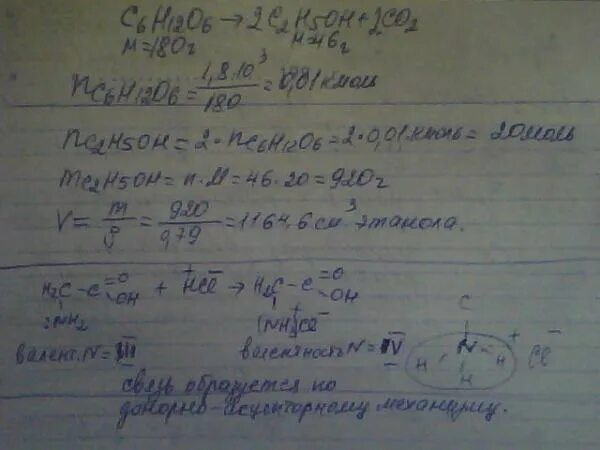 C6H12O6 → 2C2H5OH + 2CO2
M=180г M=46г
nC6H12O6 = 1,8·10³/180 = 0,01 кмоль
nC2H5OH = 2·nC6H12O6 = 2·0,01 кмоль = 20моль
mC2H5OH = n·M = 46·20 = 920г
V = m/ρ = 920/0,79 = 1164,6 см³ этанола.
H2C–C=O OH + H⁺Cl⁻ → H2C–C=O OH
:NH2 (NH3)⁺Cl⁻
C
H N H + Cl⁻
H
валент. N = III валентность N = IV
связь образуется по
донорно-акцепторному механизму.